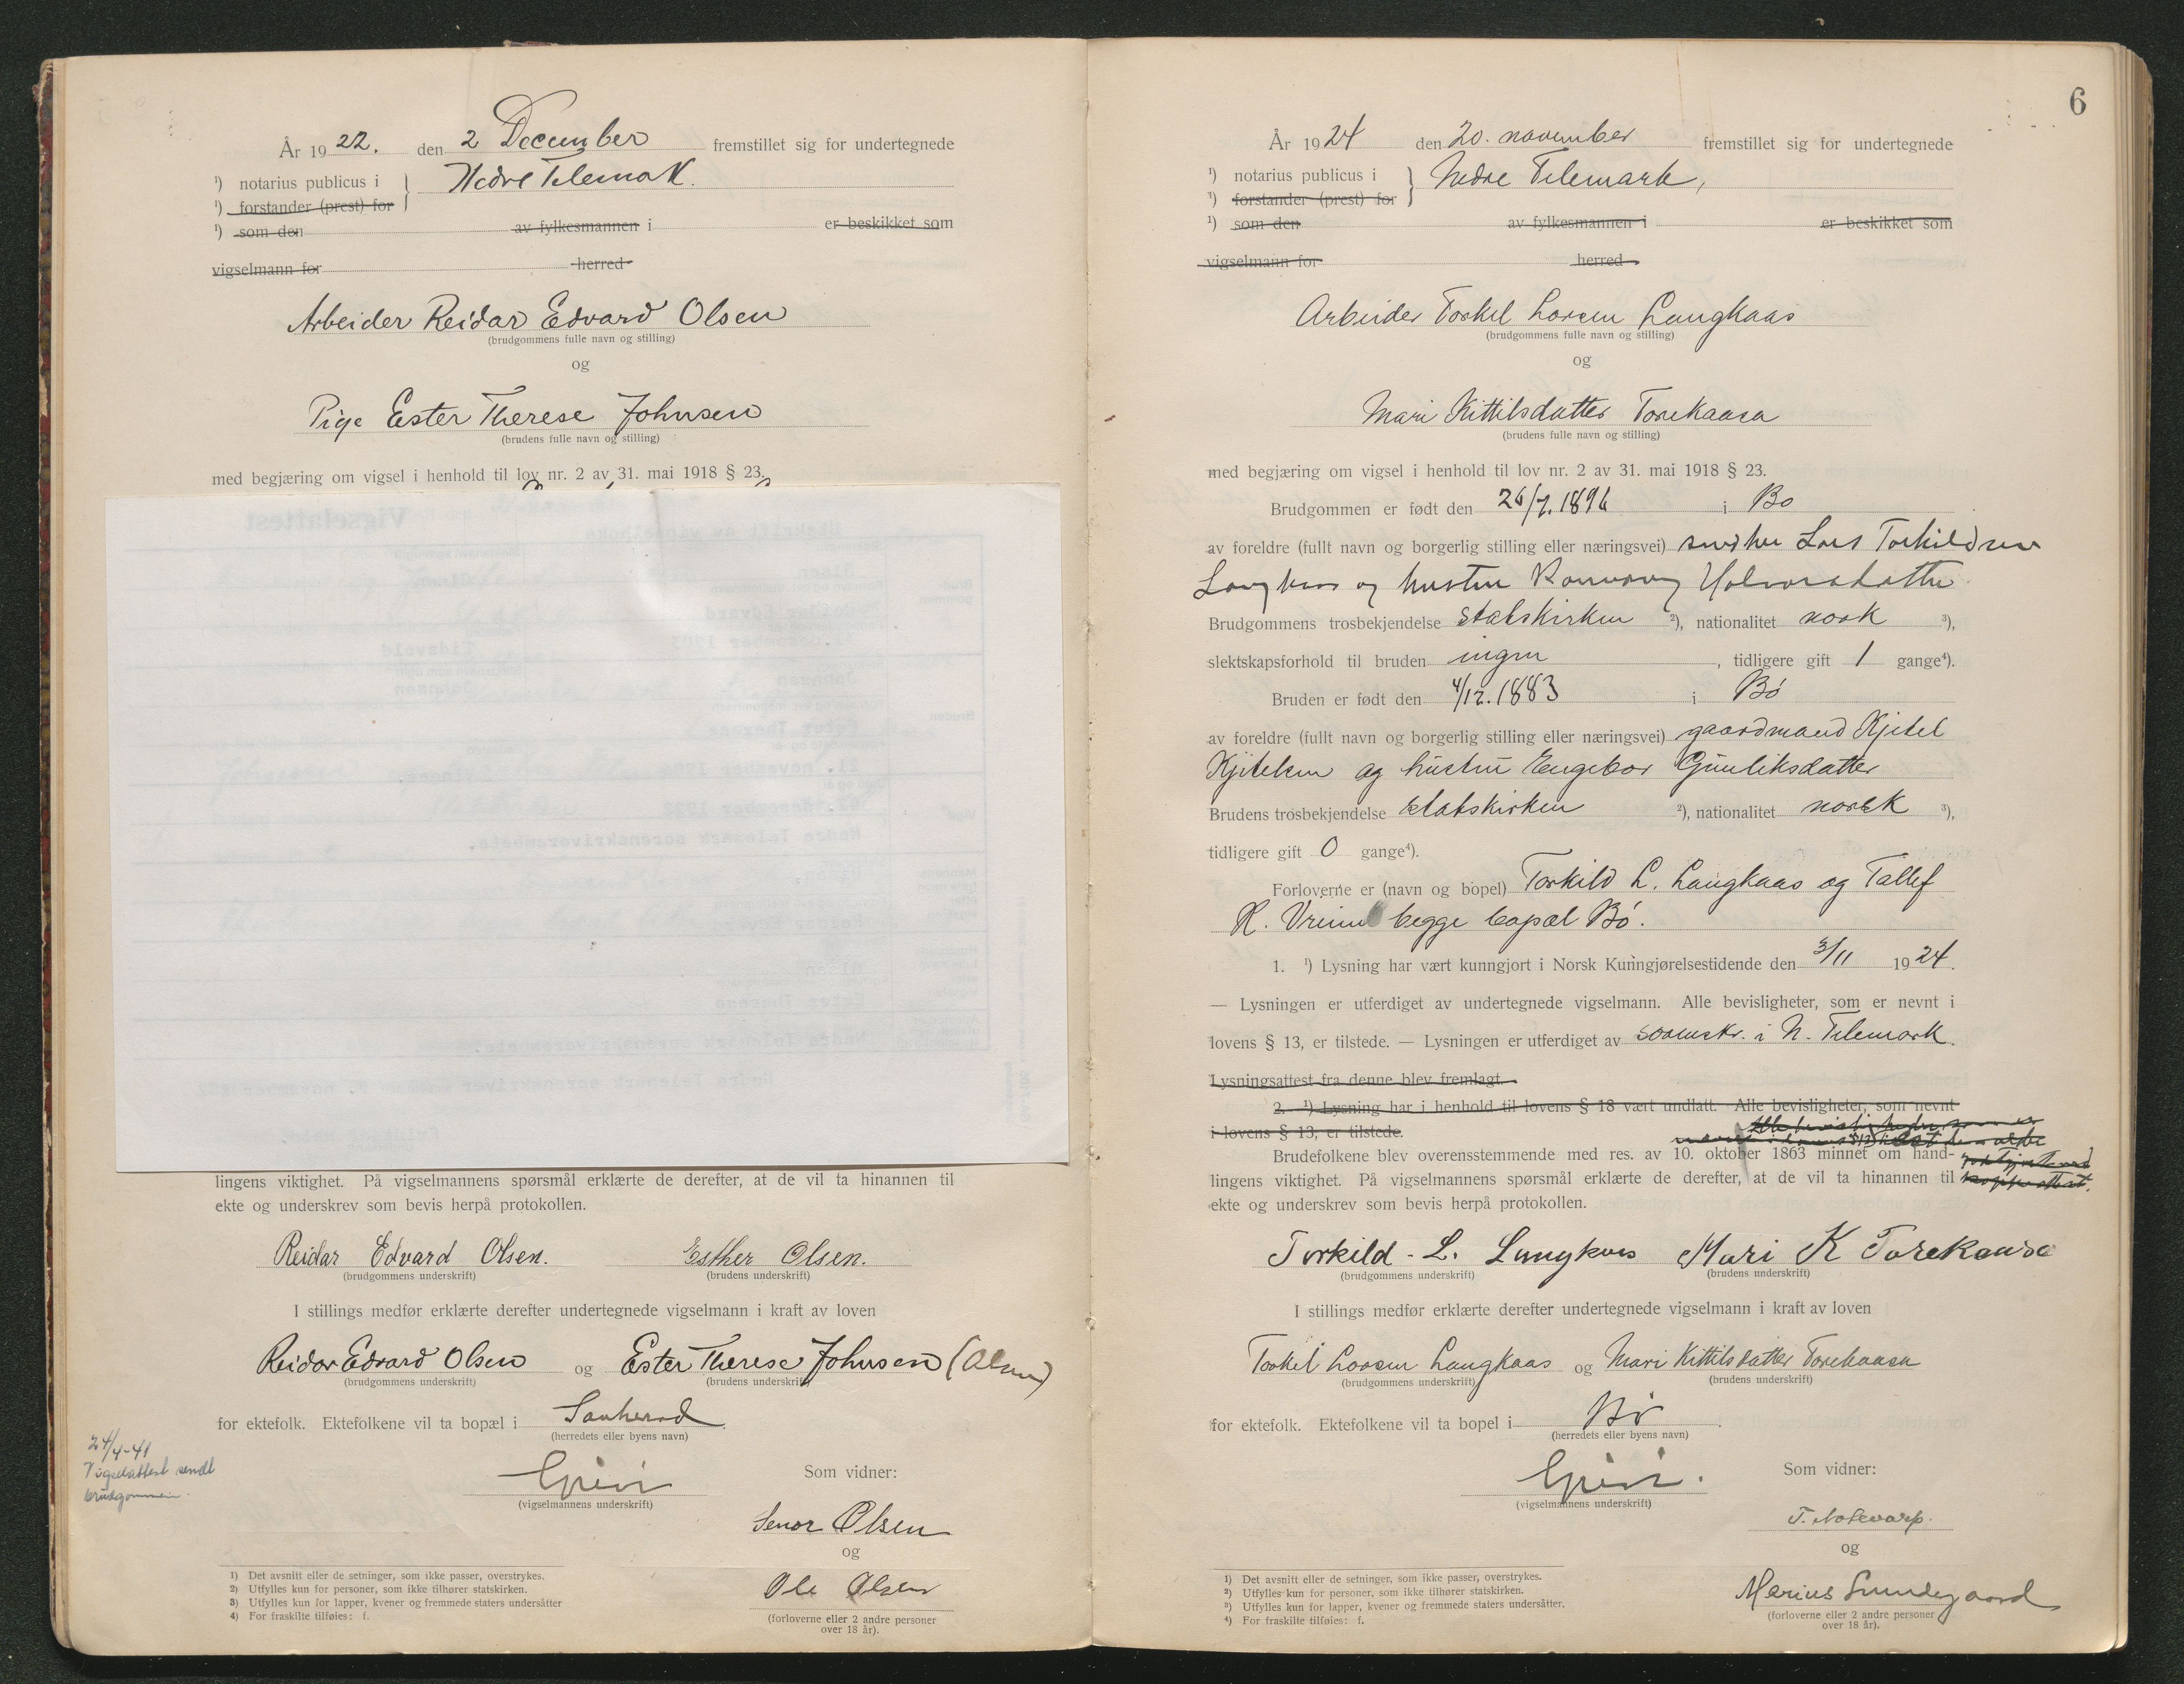 År 1922. den 2 December fremstillet sig for undertegnede
¹) notarius publicus i Nedre Telemark.
¹) forstander (prest) for
¹) som den av fylkesmannen i er beskikket som
vigselmann for herred
Arbeider Reidar Edvard Olsen
(brudgommens fulle navn og stilling)
og
Pige Ester Therese Johnsen
(brudens fulle navn og stilling)
med begjæring om vigsel i henhold til lov nr. 2 av 31. mai 1918 § 23.
lingens viktighet. På vigselmannens spørsmål erklærte de derefter, at de vil ta hinannen til
ekte og underskrev som bevis herpå protokollen.
Reidar Edvard Olsen. Esther Olsen.
(brudgommens underskrift) (brudens underskrift)
I stillings medfør erklærte derefter undertegnede vigselmann i kraft av loven
Reidar Edvard Olsen og Ester Therese Johnsen (Olsen)
(brudgommens underskrift) (brudens underskrift)
for ektefolk. Ektefolkene vil ta bopæl i Sauherad.
(herredets eller byens navn)
24/4-41
Vigselattest sendt
brudgommen.
Som vidner:
(vigselmannens underskrift)
Senor Olsen
og
Ole Olsen
(forloverne eller 2 andre personer
over 18 år).
1) Det avsnitt eller de setninger, som ikke passer, overstrykes.
2) Utfylles kun for personer, som ikke tilhører statskirken.
3) Utfylles kun for lapper, kvener og fremmede staters undersåtter
4) For fraskilte tilføies: f.
6
År 1924 den 20. november fremstillet sig for undertegnede
¹) notarius publicus i Nedre Telemark,
¹) forstander (prest) for
¹) som den av fylkesmannen i er beskikket som
vigselmann for herred
Arbeider Torkel Larsen Langkaas
(brudgommens fulle navn og stilling)
og
Mari Kittilsdatter Torekaasa
(brudens fulle navn og stilling)
med begjæring om vigsel i henhold til lov nr. 2 av 31. mai 1918 § 23.
Brudgommen er født den 26/7.1896 i Bø
av foreldre (fullt navn og borgerlig stilling eller næringsvei) snedker Lars Torkildsen
Langkaas og hustru Ronnaug Halvorsdatter
Brudgommens trosbekjendelse statskirken ²), nationalitet norsk ³),
slektskapsforhold til bruden ingen, tidligere gift 1 gange⁴).
Bruden er født den 4/12.1883 i Bø
av foreldre (fullt navn og borgerlig stilling eller næringsvei) gaardmand Kjitel
Kjitelsen og hustru Engebor Gunliksdatter
Brudens trosbekjendelse statskirken ²), nationalitet norsk ³),
tidligere gift 0 gange⁴).
Forloverne er (navn og bopel) Torkild L. Langkaas og Tallef
K. Vreim begge bopæl Bø.
1. ¹) Lysning har vært kunngjort i Norsk Kunngjørelsestidende den 3/11 1924.
— Lysningen er utferdiget av undertegnede vigselmann. Alle bevisligheter, som er nevnt i
lovens § 13, er tilstede. — Lysningen er utferdiget av sorenskr. i N. Telemark.
Lysningsattest fra denne blev fremlagt.
2. ¹) Lysning har i henhold til lovens § 18 vært undlatt. Alle bevisligheter, som nevnt
i lovens § 13, er tilstede.
Brudefolkene blev overensstemmende med res. av 10. oktober 1863 minnet om hand-
lingens viktighet. På vigselmannens spørsmål erklærte de derefter, at de vil ta hinannen til
ekte og underskrev som bevis herpå protokollen.
Torkild. L. Langkaas Mari K Torekaasa
(brudgommens underskrift) (brudens underskrift)
I stillings medfør erklærte derefter undertegnede vigselmann i kraft av loven
Torkel Larsen Langkaas og Mari Kittilsdatter Torekaasa
(brudgommens underskrift) (brudens underskrift)
for ektefolk. Ektefolkene vil ta bopel i Bø.
(herredets eller byens navn)
Som vidner:
(vigselmannens underskrift)
T. Notevarp.
og
Marius Lundegaard
(forloverne eller 2 andre personer
over 18 år).
1) Det avsnitt eller de setninger, som ikke passer, overstrykes.
2) Utfylles kun for personer, som ikke tilhører statskirken.
3) Utfylles kun for lapper, kvener og fremmede staters undersåtter.
4) For fraskilte tilføies: f.